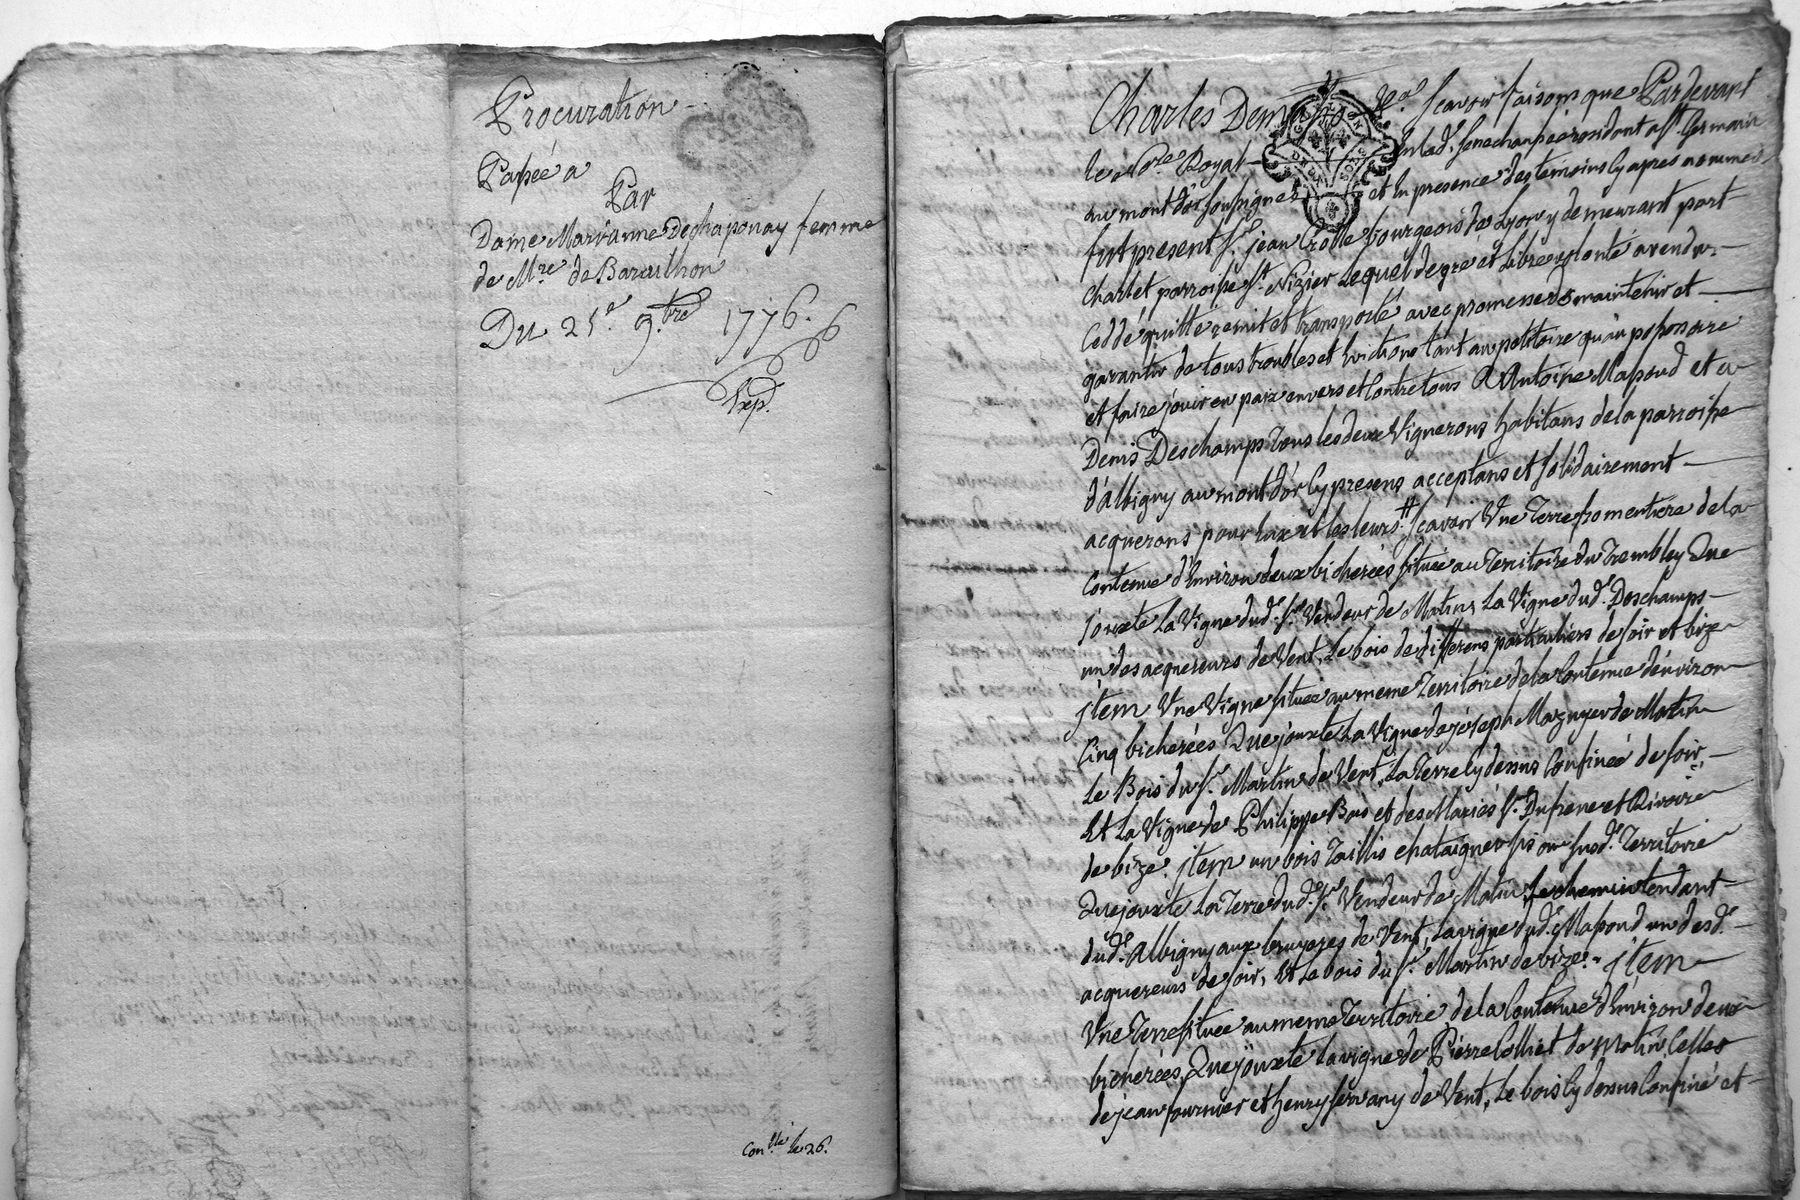 Procuration
Passée a
Par
Dame Marianne Deschaponay femme
de M.re de Barailhon
Du 25.e 9.bre 1776.
Exp.
Con.lé le 26.
Charles Dema scavoir faisons que Pardevant
le N.re Royal en lad. senechaussée residant a S.t Germain
au mont d'or soussigné et en presence des temoins cy apres nommés
fut present S.r jean Crolle bourgeois de Lyon y demeurant port
Charlet parroisse S.t Nizier Lequel de gré et libre volonté a vendu
Ceddé quitté remit et transporté avec promesse de maintenir et
garantir de tous troubles et Evictions tant au petitoire qu'au possessoire
et faire jouir en paix envers et Contre tous A Antoine Massoud et a
Denis Deschamps tous les deux Vignerons habitans de la parroisse
d'albigny au mont d'or Cy presens acceptans et solidairement
acquerans pour Eux et les leurs scavoir Une Terre fromentiere de la
Contenue d'Environ deux bicherées située au Territoire du Trembley Que
jouxte La Vigne dud. S.r Vendeur de Matin, La Vigne dud. Deschamps
un des acquereurs de Vent, Le bois de differens particuliers de soir et bize
jtem Une Vigne située au meme Territoire de la Contenue d'environ
Cinq bicherées Que jouxte La Vigne de joseph Mazuyer de Matin
Le Bois du S.r Martin de Vent, La Terre Cy dessus Confinée de soir,
Et La Vigne de Philippe Bas et des Mariés Dufrene et Rivoire
de bize. jtem un bois Taillis chataigner sis au susd. Territoire
Que jouxte La Terre dud. S.r Vendeur de Matin Le chemin tendant
dud. Albigny aux bruyeres de Vent, La vigne dud. Massoud un desd.
acquereurs de soir, Et Le bois du S.r Martin de bize. jtem
Une Terre située au meme Territoire de la Contenue d'Environ deux
bicherées, Que jouxte La vigne de Pierre Colliet de Matin Celles
de jean fournier et henry de Vent, Le bois Cy dessus Confiné et